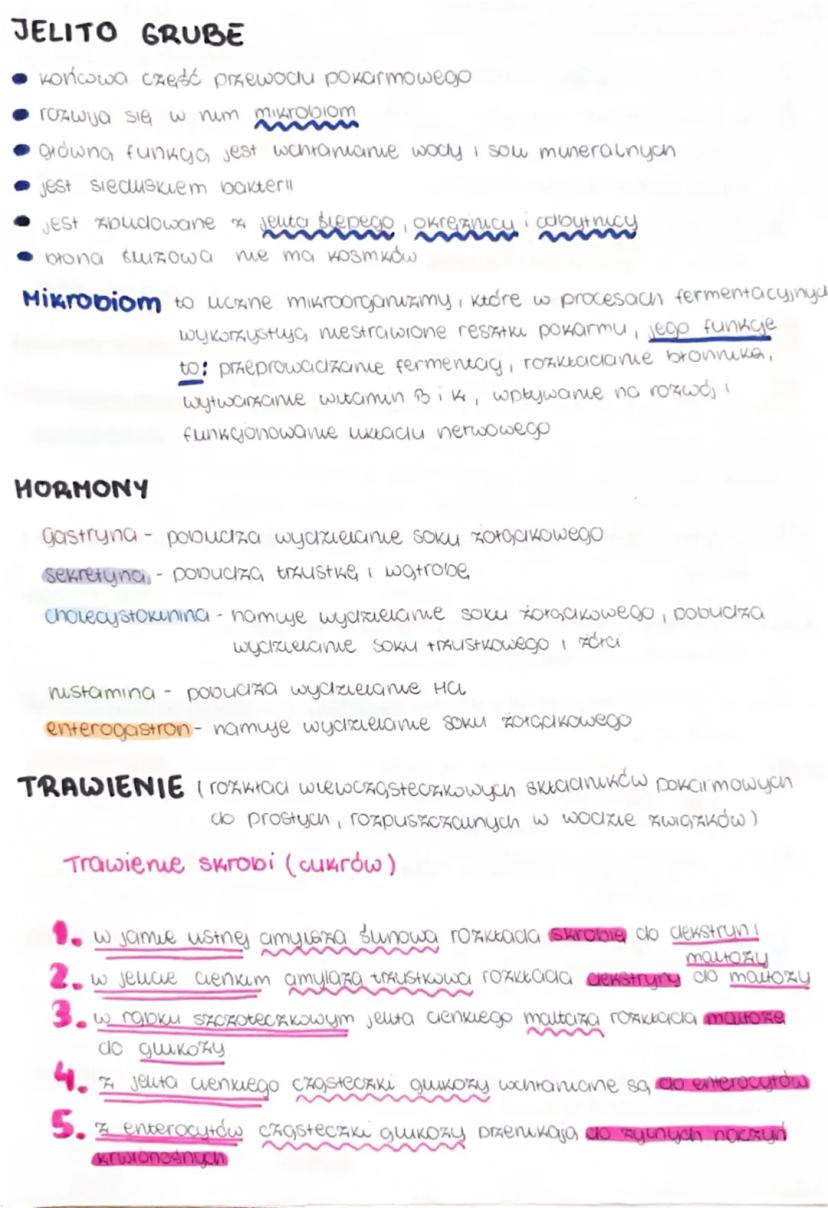 JELITO GRUBE
• końcowa część przewodu pokarmowego
• rozwija się w nim mikrobiom
• główną funkcją jest wchłanianie wody i soli mineralnych
• jest siedliskiem bakterii
• jest zbudowane z jelita ślepego, okrężnicy i odbytnicy
• błona śluzowa nie ma kosmków
Mikrobiom to liczne mikroorganizmy, które w procesach fermentacyjnych
wykorzystują niestrawione resztki pokarmu, jego funkcje
to: przeprowadzanie fermentacji, rozkładanie błonnika,
wytwarzanie witamin B i K, wpływanie na rozwój i
funkcjonowanie układu nerwowego
HORMONY
gastryna - pobudza wydzielanie soku żołądkowego
sekretyna - pobudza trzustkę i wątrobę
cholecystokinina - hamuje wydzielanie soku żołądkowego, pobudza
wydzielanie soku trzustkowego i żółci
histamina - pobudza wydzielanie HCl
enterogastron - hamuje wydzielanie soku żołądkowego
TRAWIENIE (rozkład wielocząsteczkowych składników pokarmowych
do prostych, rozpuszczalnych w wodzie związków)
Trawienie skrobi (cukrów)
1. w jamie ustnej amylaza ślinowa rozkłada skrobię do dekstryn i
maltozy
2. w jelicie cienkim amylaza trzustkowa rozkłada dekstryny do maltozy
3. w rąbku szczoteczkowym jelita cienkiego maltaza rozkłada maltozę
do glukozy
4. z jelita cienkiego cząsteczki glukozy wchłaniane są do enterocytów
5. z enterocytów cząsteczki glukozy przenikają do żylnych naczyń
krwionośnych